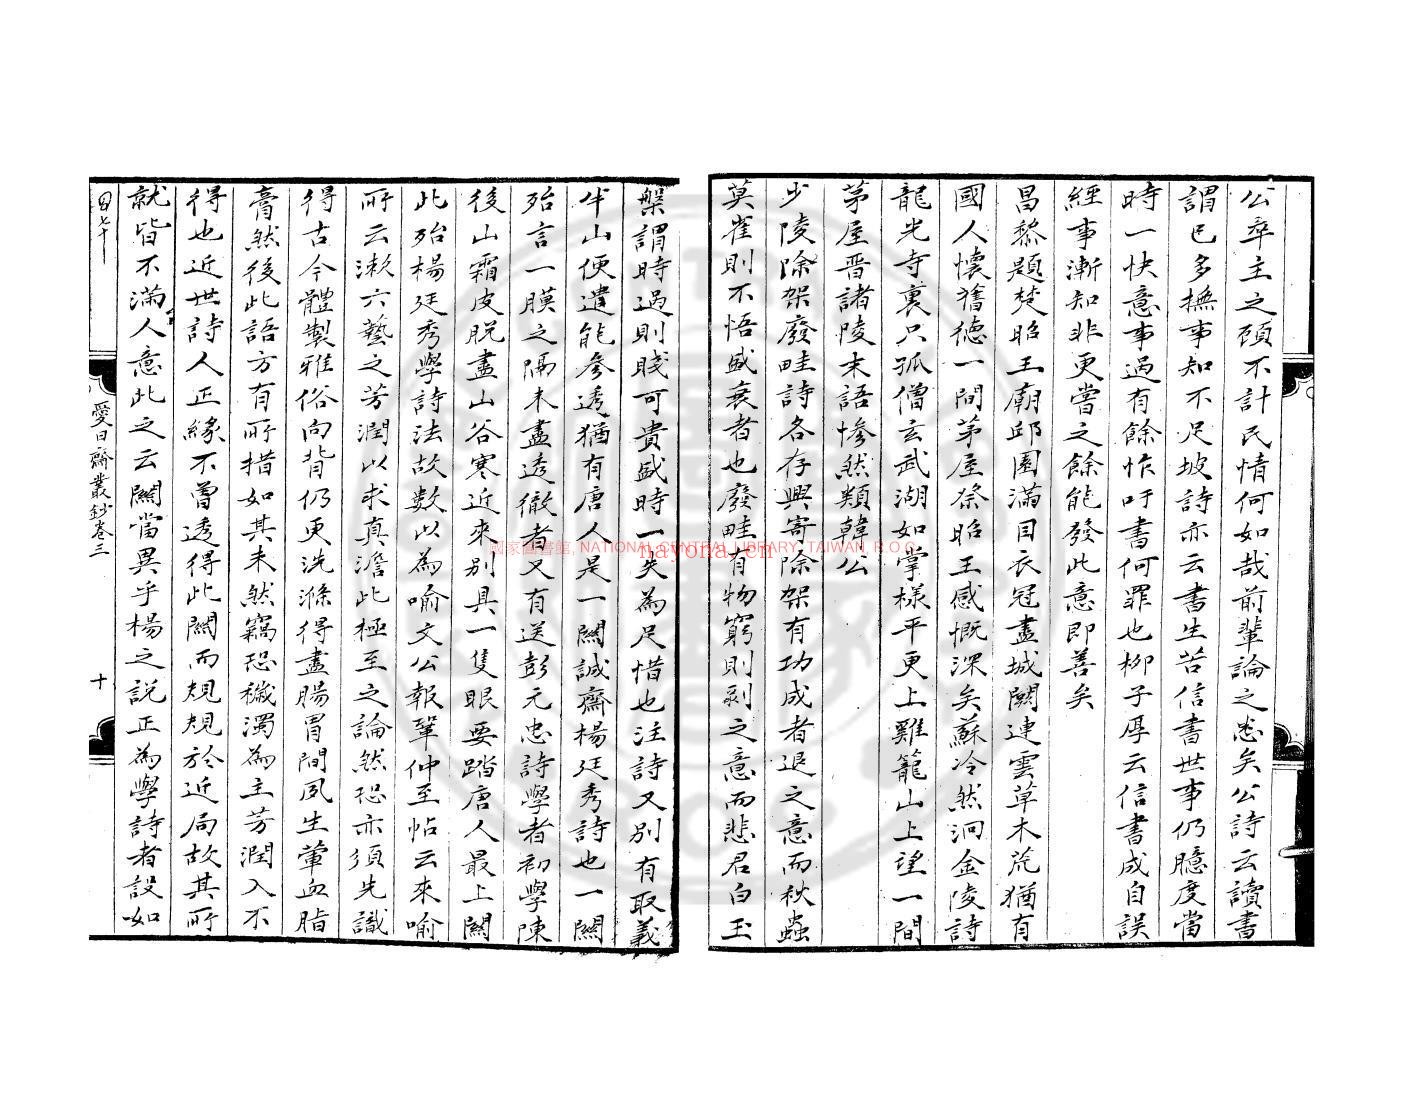 公卒主之頭不計民情何如哉前輩論之悉矣公詩云讀書
謂已多撫事知不足坡詩亦云書生苦信書世事仍臆度當
時一快意事過有餘怍吁書何罪也柳子厚云信書成自誤
經事漸知非更嘗之餘能發此意即善矣
昌黎題楚昭王廟邱園滿目衣冠盡城闕連雲草木荒猶有
國人懷舊德一間茅屋祭昭王感慨深矣蘇泠然泂金陵詩
龍光寺裏只孤僧玄武湖如掌樣平更上雞籠山上望一間
茅屋晋諸陵末語慘然類韓公
少陵除架廢畦詩各存興寄除架有功成者退之意而秋蟲
莫雀則不悟盛衰者也廢畦有物窮則剥之意而悲君白玉
槃謂時過則賤可貴盛時一失為足惜也注詩又别有取義
半山便遣能參透猶有唐人是一關誠齋楊廷秀詩也一關
殆言一膜之隔未盡透徹者又有送彭元忠詩學者初學陳
後山霜皮脱盡山谷寒近來别具一隻眼要踏唐人最上關
此殆楊廷秀學詩法故數以為喻文公報鞏仲至帖云來喻
所云漱六藝之芳潤以求真澹此極至之論然恐亦須先識
得古今體製雅俗向背仍更洗滌得盡腸胃間夙生葷血脂
膏然後此語方有所措如其未然竊恐穢濁為主芳潤入不
得也近世詩人正緣不曾透得此關而規規於近局故其所
就皆不滿人意此之云關當異乎楊之説正為學詩者設如
愛日齋叢鈔卷三
十
國家圖書館, NATIONAL CENTRAL LIBRARY, TAIWAN, R.O.C
nayona.cn